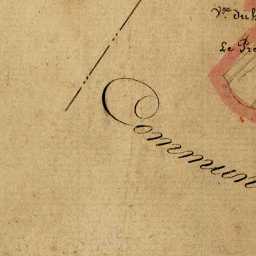 Vve. du
Le Pr
Commun